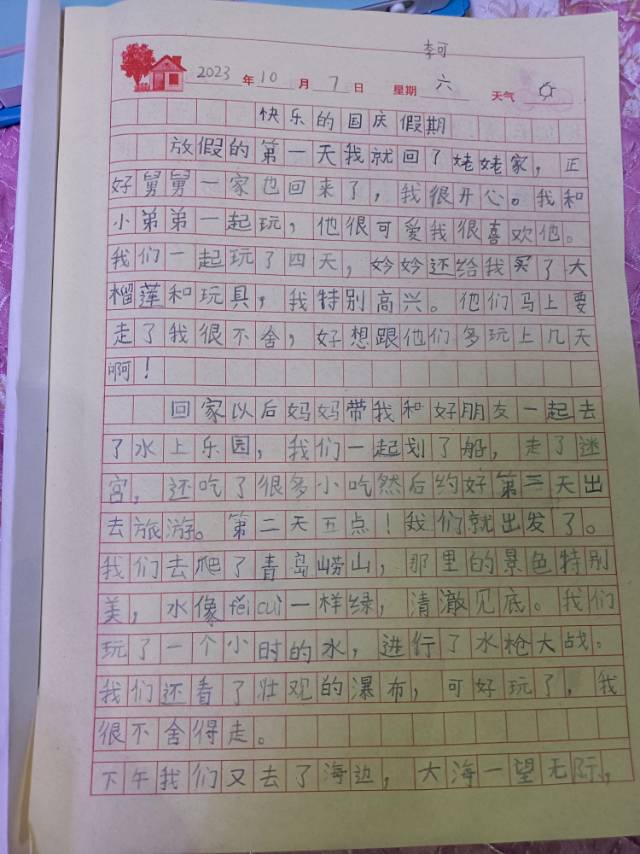 李可
2023年10月7日 星期六 天气
快乐的国庆假期
放假的第一天我就回了姥姥家，正
好舅舅一家也回来了，我很开心。我和
小弟弟一起玩，他很可爱我很喜欢他。
我们一起玩了四天，妗妗还给我买了大
榴莲和玩具，我特别高兴。他们马上要
走了我很不舍，好想跟他们多玩上几天
啊！
回家以后妈妈带我和好朋友一起去
了水上乐园，我们一起划了船，走了迷
宫，还吃了很多小吃然后约好第二天出
去旅游。第二天五点！我们就出发了。
我们去爬了青岛崂山，那里的景色特别
美，水像fěi cuì一样绿，清澈见底。我们
玩了一个小时的水，进行了水枪大战。
我们还看了壮观的瀑布，可好玩了，我
很不舍得走。
下午我们又去了海边，大海一望无际，